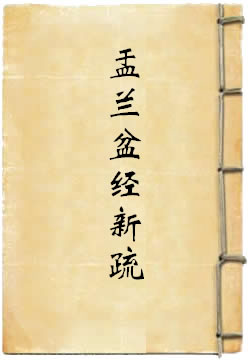 盂兰盆经新疏